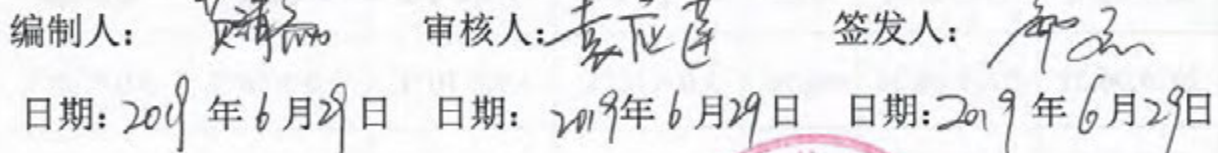 编制人： 审核人：袁应莲 签发人：
日期：2019年6月29日 日期：2019年6月29日 日期：2019年6月29日